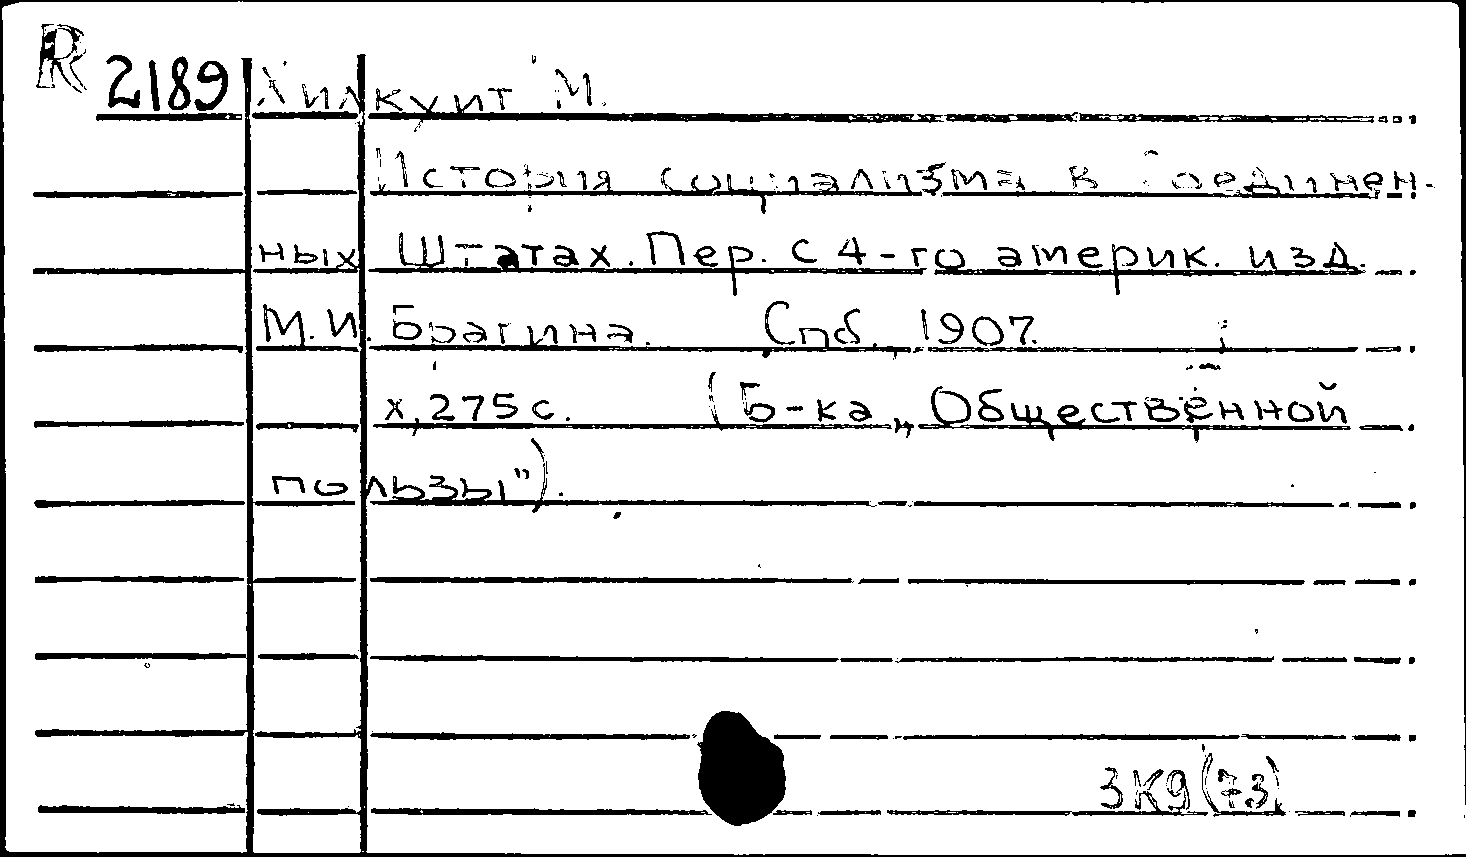 R 2189 Хилкуит М.
История социализма в Соединен-
ных Штатах. Пер. с 4-го америк. изд.
М.И. Брагина. Спб., 1907.
x, 275 с. (Б-ка „Общественной
пользы").
3К9(73)